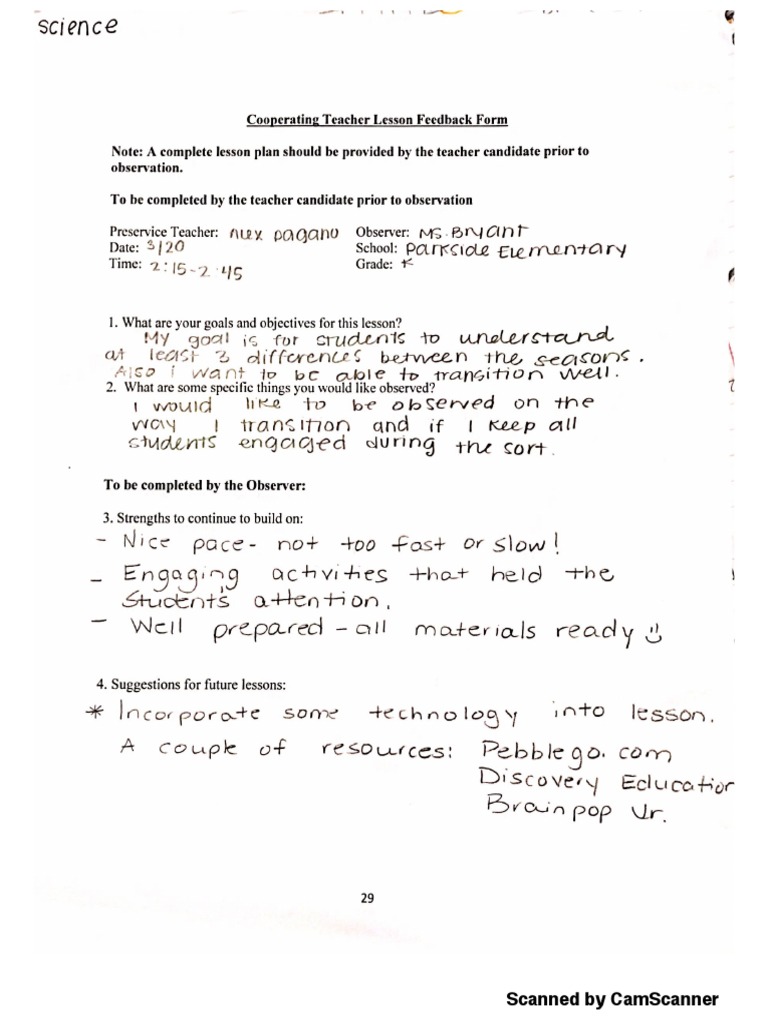 science
Cooperating Teacher Lesson Feedback Form
Note: A complete lesson plan should be provided by the teacher candidate prior to
observation.
To be completed by the teacher candidate prior to observation
Preservice Teacher: Alex Pagano Observer: Ms. Bryant
Date: 3/20 School: Parkside Elementary
Time: 2:15-2:45 Grade: K
1. What are your goals and objectives for this lesson?
My goal is for students to understand
at least 3 differences between the seasons.
Also i want to be able to transition well.
2. What are some specific things you would like observed?
I would like to be observed on the
way I transition and if I keep all
students engaged during the sort.
To be completed by the Observer:
3. Strengths to continue to build on:
- Nice pace - not too fast or slow!
- Engaging activities that held the
students attention.
- Well prepared - all materials ready
4. Suggestions for future lessons:
* Incorporate some technology into lesson.
A couple of resources: Pebblego.com
Discovery Education
Brainpop Jr.
29
Scanned by CamScanner